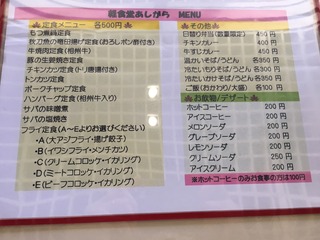 軽食堂あしがら MENU
定食メニュー 各500円
もつ煮鍋定食
秋刀魚の竜田揚げ定食(おろしポン酢付き)
牛焼肉定食(相州牛)
豚の生姜焼き定食
チキンカツ定食(トリ唐揚付き)
トンカツ定食
ポークチャップ定食
ハンバーグ定食(相州牛入り)
サバの味噌煮
サバの塩焼き
フライ定食(A〜Eよりお選びください)
・A(大アジフライ・揚げ餃子)
・B(イワシフライ・メンチカツ)
・C(クリームコロッケ・イカリング)
・D(ミートコロッケ・イカリング)
・E(ビーフコロッケ・イカリング)
その他
日替り弁当(数量限定) 450円
チキンカレー 400円
牛すじカレー 450円
温かいそば/うどん 各350円
冷たいもりそば/うどん 各350円
冷たいサラダそば/うどん 各350円
ご飯(おかわり/大盛) 各100円
お飲物/デザート
ホットコーヒー 200円
アイスコーヒー 200円
メロンソーダ 200円
グレープソーダ 200円
レモンソーダ 200円
クリームソーダ 250円
アイスクリーム 200円
※ホットコーヒーのみお食事の方は100円